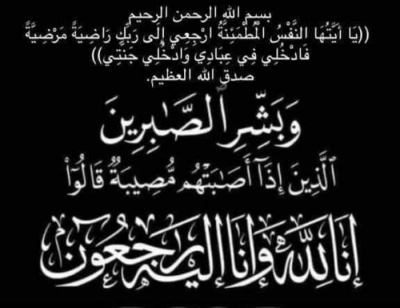 بسم الله الرحمن الرحيم
((يَا أَيَّتُهَا النَّفْسُ الْمُطْمَئِنَّةُ ارْجِعِي إِلَى رَبِّكِ رَاضِيَةً مَرْضِيَّةً
فَادْخُلِي فِي عِبَادِي وَادْخُلِي جَنَّتِي))
صدق الله العظيم.
وَبَشِّرِ الصَّابِرِينَ
الَّذِينَ إِذَا أَصَابَتْهُم مُّصِيبَةٌ قَالُوا
إِنَّا لِلَّهِ وَإِنَّا إِلَيْهِ رَاجِعُونَ